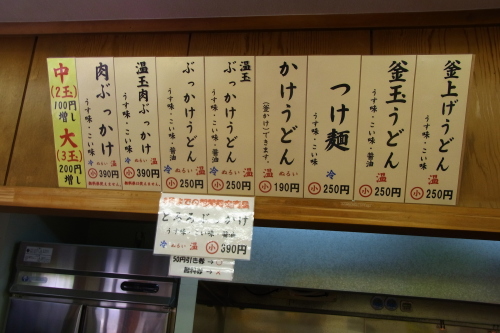 釜上げうどん
うす味・こい味
温
小 250円
釜玉うどん
うす味・こい味・醤油
温
小 250円
つけ麺
冷
小 350円
かけうどん
(釜かけ)できます。
うす味・こい味
温
小 190円
温玉
ぶっかけうどん
うす味・こい味・醤油
冷 ぬるい 温
小 250円
ぶっかけうどん
うす味・こい味・醤油
冷 ぬるい 温
小 250円
温玉肉ぶっかけ
うす味・こい味
冷 ぬるい 温
小 390円
肉ぶっかけ
うす味・こい味
冷 ぬるい 温
小 390円
中
(2玉)
100円
増し
大
(3玉)
200円
増し
とろろぶっかけ
うす味・こい味・醤油
冷 ぬるい 温
小 390円
50円引き券